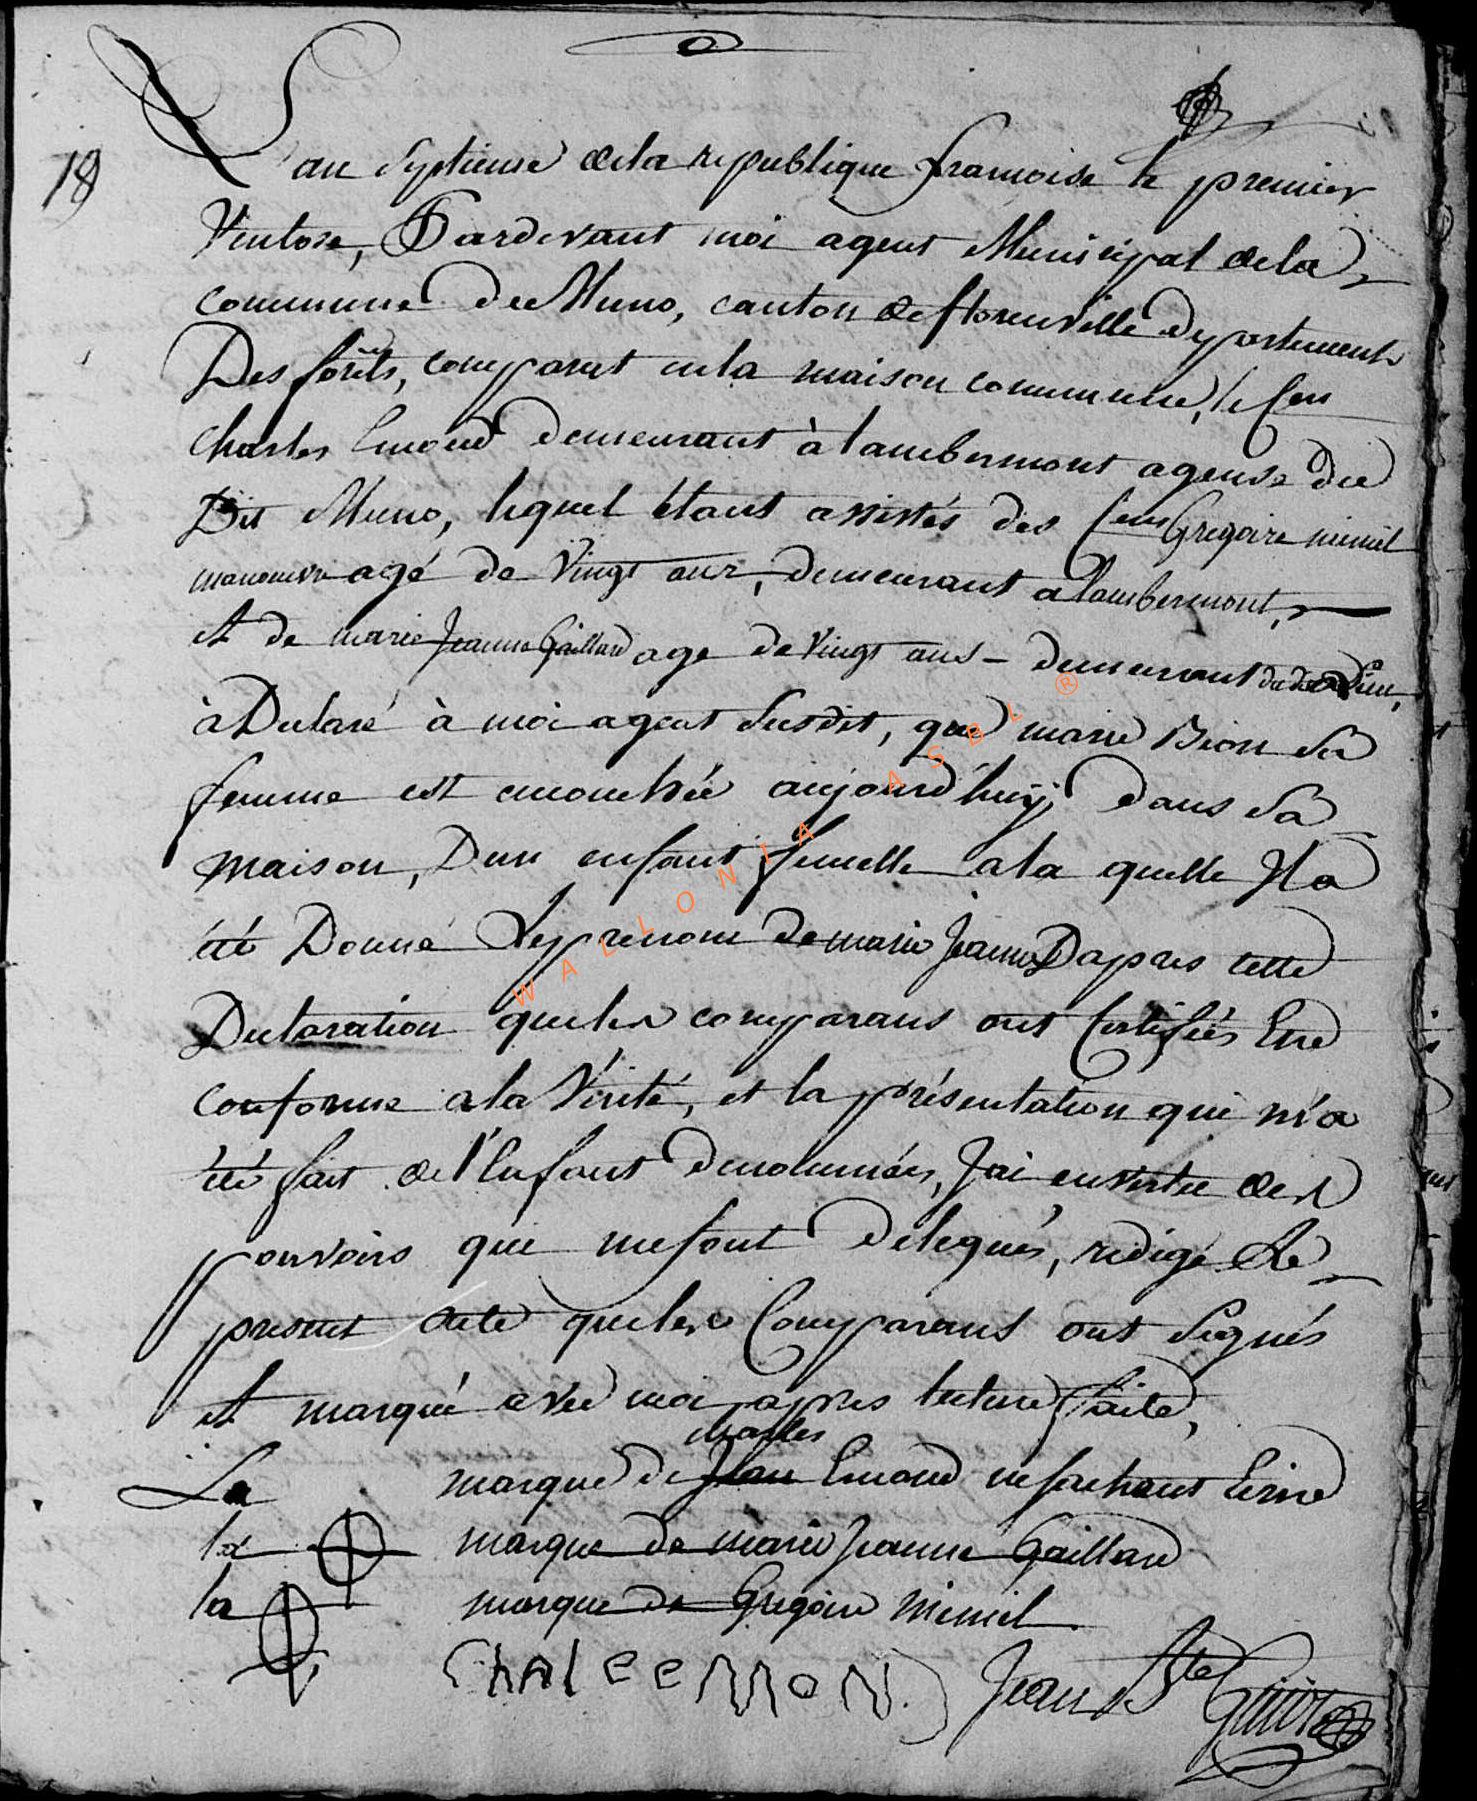 18
L'an Septieme de la republique francoise le premier
Ventose, Pardevant moi agent Municipal de la
commune de Muno, canton de florenville Departement
Des forêts, comparut en la maison commune, le Cen
Charles Emond demeurant à lambermont agense du
Dit Muno, lequel étant assistés des Cens Gregoire mimil
manouvre agé de Vingt ans, demeurant a lambermont,
et de marie Jeanne Gaillard age de Vingt ans - demeurant
à Declaré à moi agent Susdit, que marie Bion Sa
femme est accouchée aujourd'huy, dans Sa
maison, D'un enfant femelle a la quelle Il a
été Donné Le prenom de marie Jeanne Dapres cette
Declaration que les comparans ont Certifiés Etre
conforme a la Vérité, et la présentation qui m'a
été fait de l'Enfant denommées, J'ai en vertu des
pouvoirs qui me sont delegués, redigé Le
present acte que les Comparans ont Signés
et marqué avec moi apres lecture faite,
Charles
La marque de Jean Emond ne sachant Ecrire
la marque de marie Jeanne Gaillard
la marque de Gregoire Mimil
ChALeeMON Jean Bte Guiot
WALLONIA ASBL ®